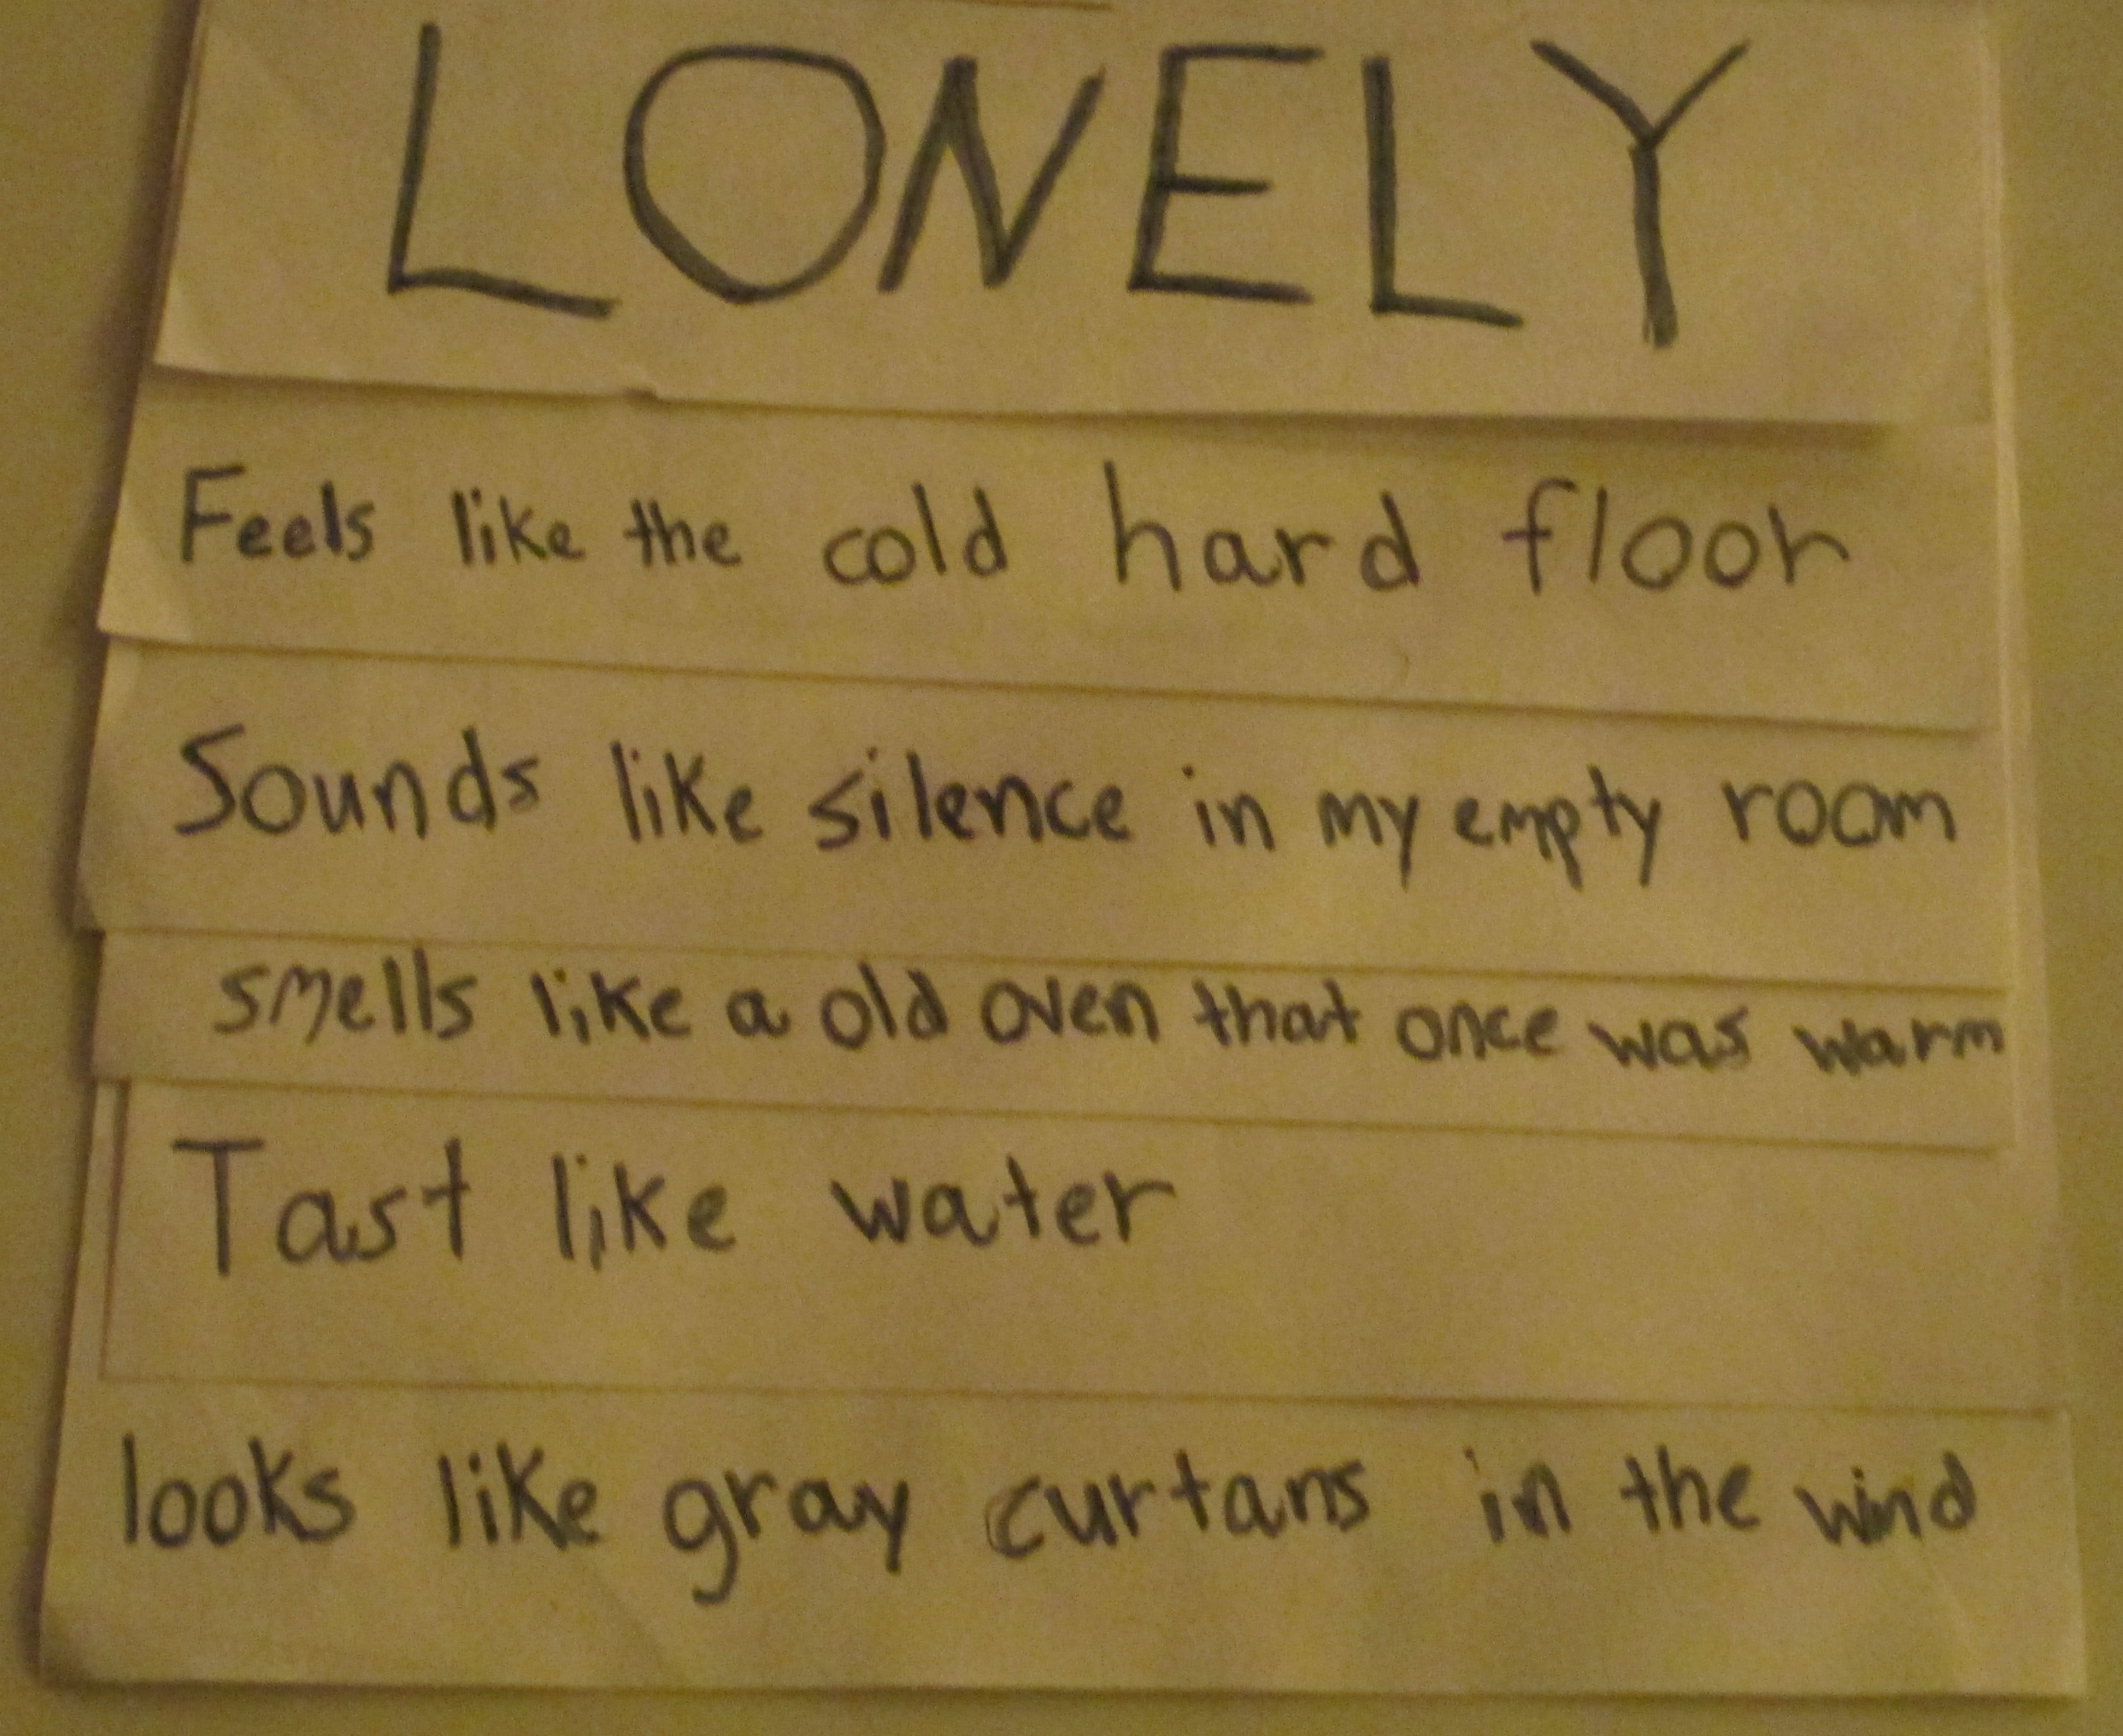 LONELY
Feels like the cold hard floor
Sounds like silence in my empty room
smells like a old oven that once was warm
Tast like water
looks like gray curtans in the wind